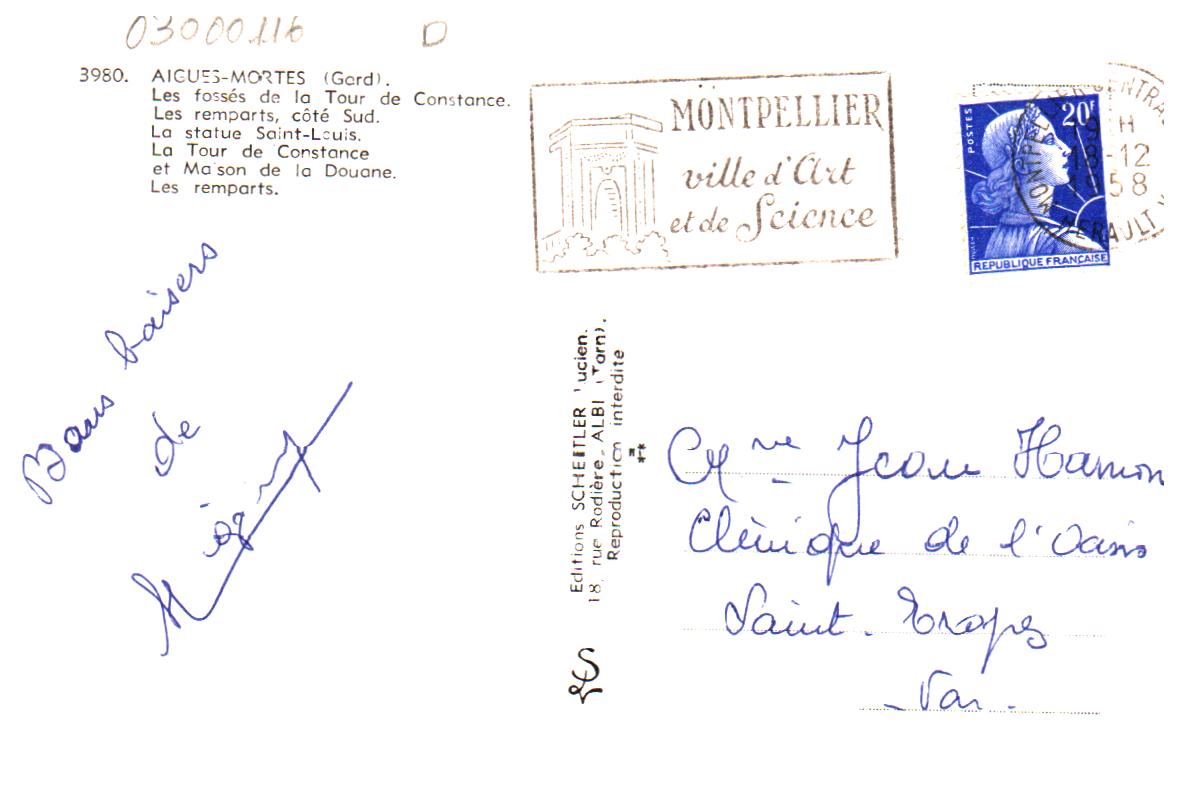 03000116 D
3980. AIGUES-MORTES (Gard).
Les fossés de la Tour de Constance.
Les remparts, côté Sud.
La statue Saint-Louis.
La Tour de Constance
et Maison de la Douane.
Les remparts.
MONTPELLIER
ville d'Art
et de Science
POSTES
20F
REPUBLIQUE FRANÇAISE
MONTPELLIER CENTRAL
19H
18-12
1958
HERAULT
Bons baisers
de
Editions SCHEITLER Lucien.
18, rue Rodière, ALBI (Tarn).
Reproduction interdite
Mme Jean Hamon
Clinique de l'Oasis
Saint-Tropez
- Var -